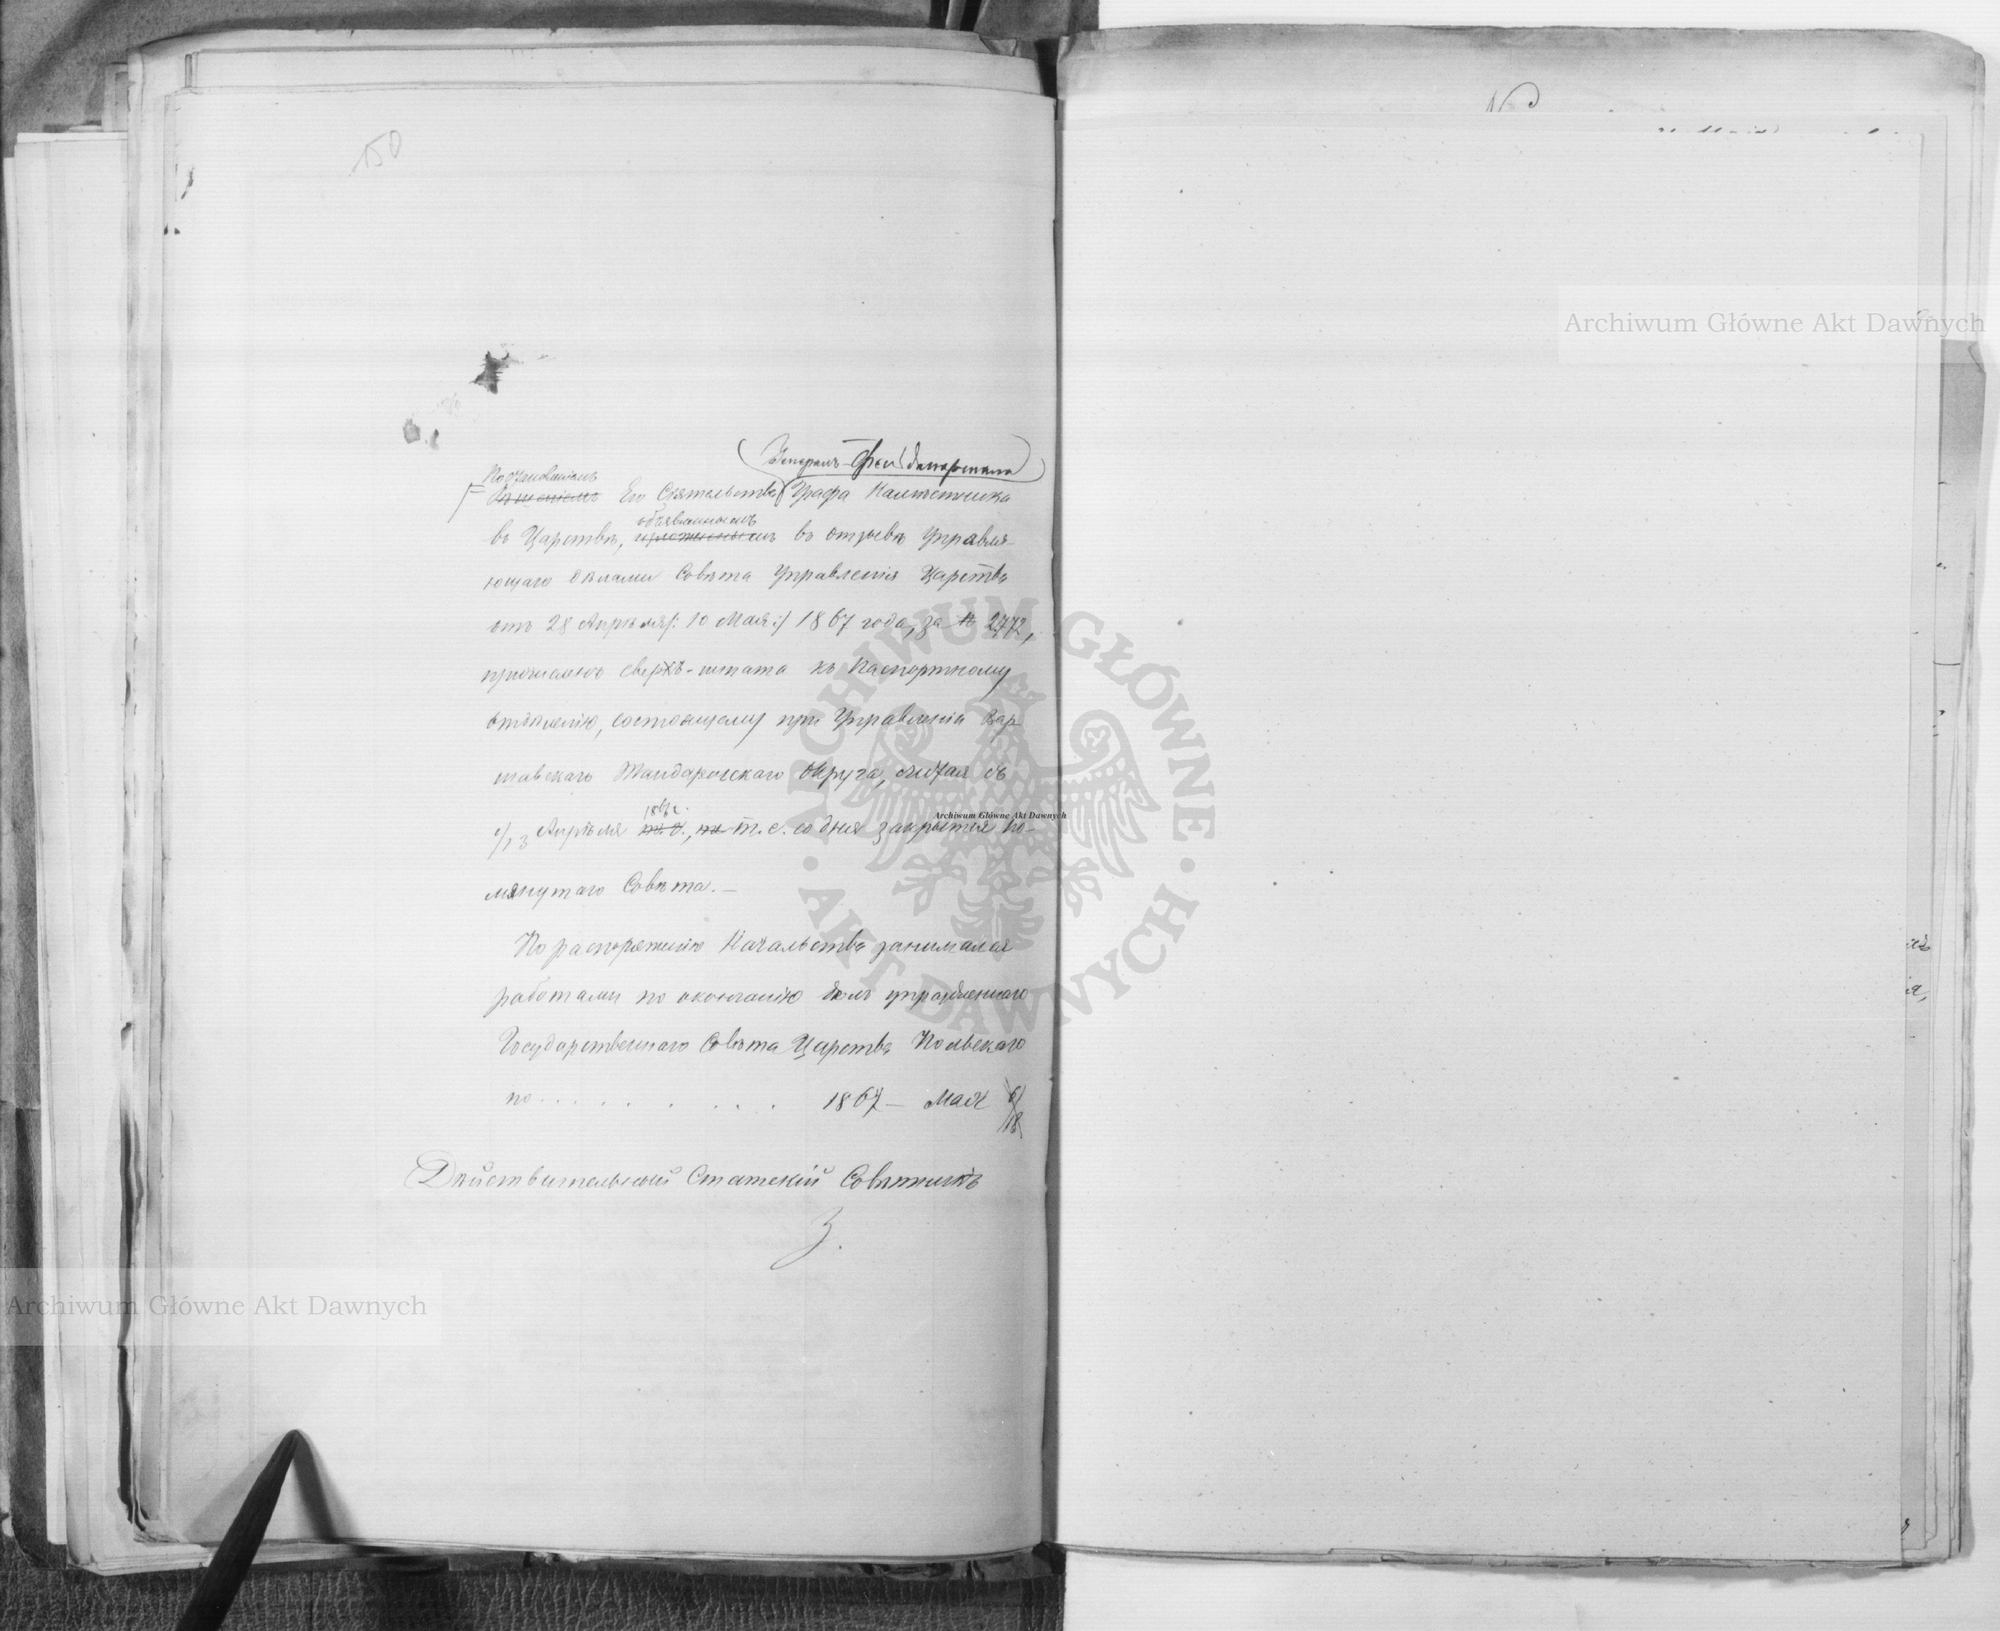 150
Генералъ-Фельдмаршала
Постановленіемъ
Его Сіятельства Графа Намѣстника
объявленнымъ
въ Царствѣ, изложеннымъ въ отзывѣ Управля-
ющаго дѣлами Совѣта Управленія Царства
отъ 28 Апрѣля /: 10 Мая :/ 1867 года, за № 2772,
причисленъ сверхъ-штата къ Паспортному
отдѣленію, состоящему при Управленіи Вар
шавскаго Жандармскаго Округа, считая съ
1867 г.
1/13 Апрѣля т. г., т. е. со дня закрытія по-
мянутаго Совѣта. —
По распоряженію Начальства занимался
работами по окончанію дѣлъ упраздненнаго
Государственнаго Совѣта Царства Польскаго
по . . . . . . . . 1867 — Мая 6/18
Дѣйствительный Статскій Совѣтникъ
З.
Archiwum Główne Akt Dawnych
Archiwum Główne Akt Dawnych
Archiwum Główne Akt Dawnych
ARCHIWUM GŁÓWNE · AKT DAWNYCH ·